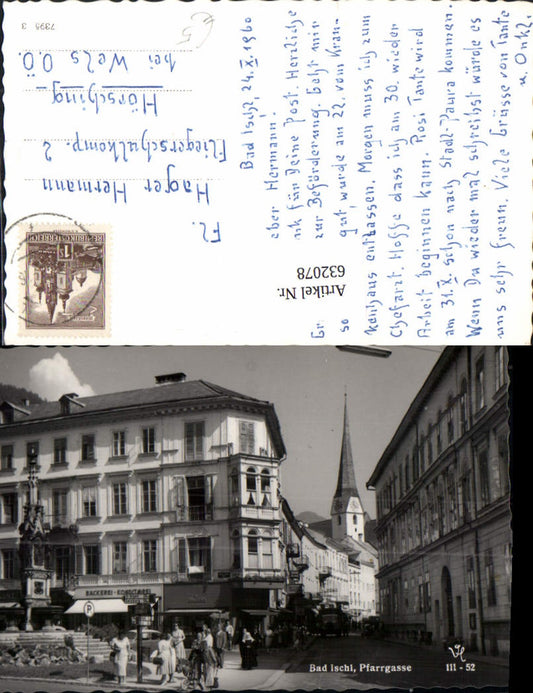 Bad Ischl, 24.X.1960
eber Hermann!
nk für Deine Post. Herzliche
Gr zur Beförderung. Geht mir
so gut, wurde am 22. vom Kran-
kenhaus entlassen. Morgen muss ich zum
Chefarzt. Hoffe dass ich am 30. wieder
Arbeit beginnen kann. Rosi Tante wird
am 31.X. schon nach Stadl-Paura kommen
Wenn Du wieder mal schreibst würde es
uns sehr freun. Viele Grüsse von Tante
u. Onkl.
Artikel Nr.
632078
REPUBLIK ÖSTERREICH
1
Fl.
Hager Hermann
Fliegerschulkomp. 2
Hörsching
bei Wels O.Ö.
7395 3
€5
BÄCKEREI - KONDITOREI
P
Bad Ischl, Pfarrgasse
111 - 52